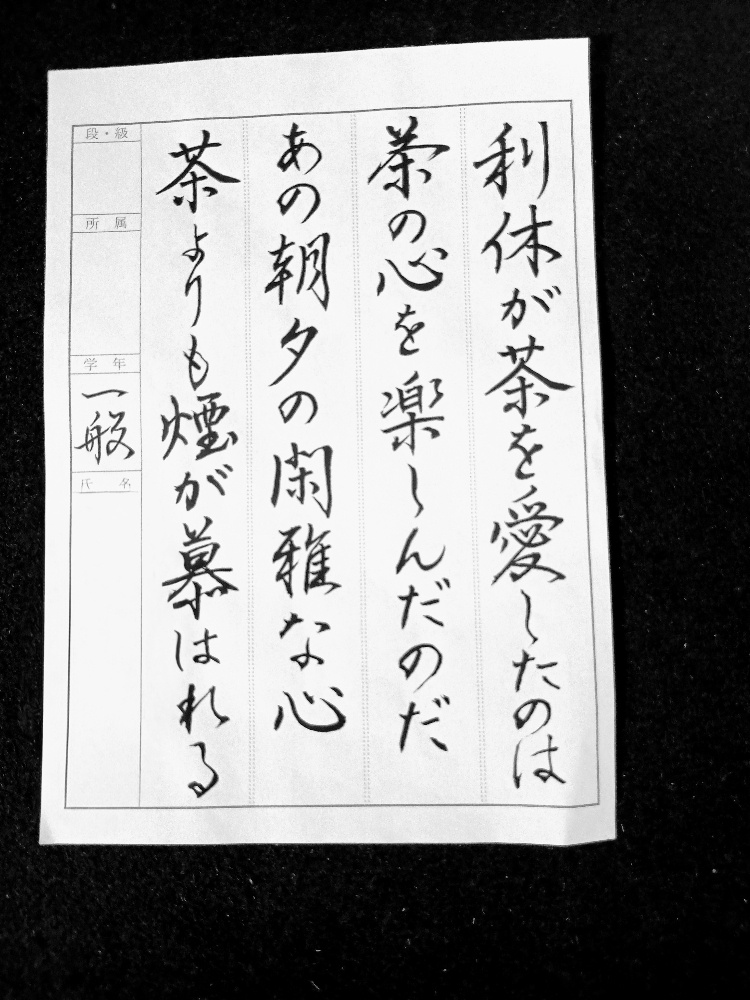 利休が茶を愛したのは
茶の心を楽しんだのだ
あの朝夕の閑雅な心
茶よりも煙が慕はれる
段・級
所属
学年
一般
氏名